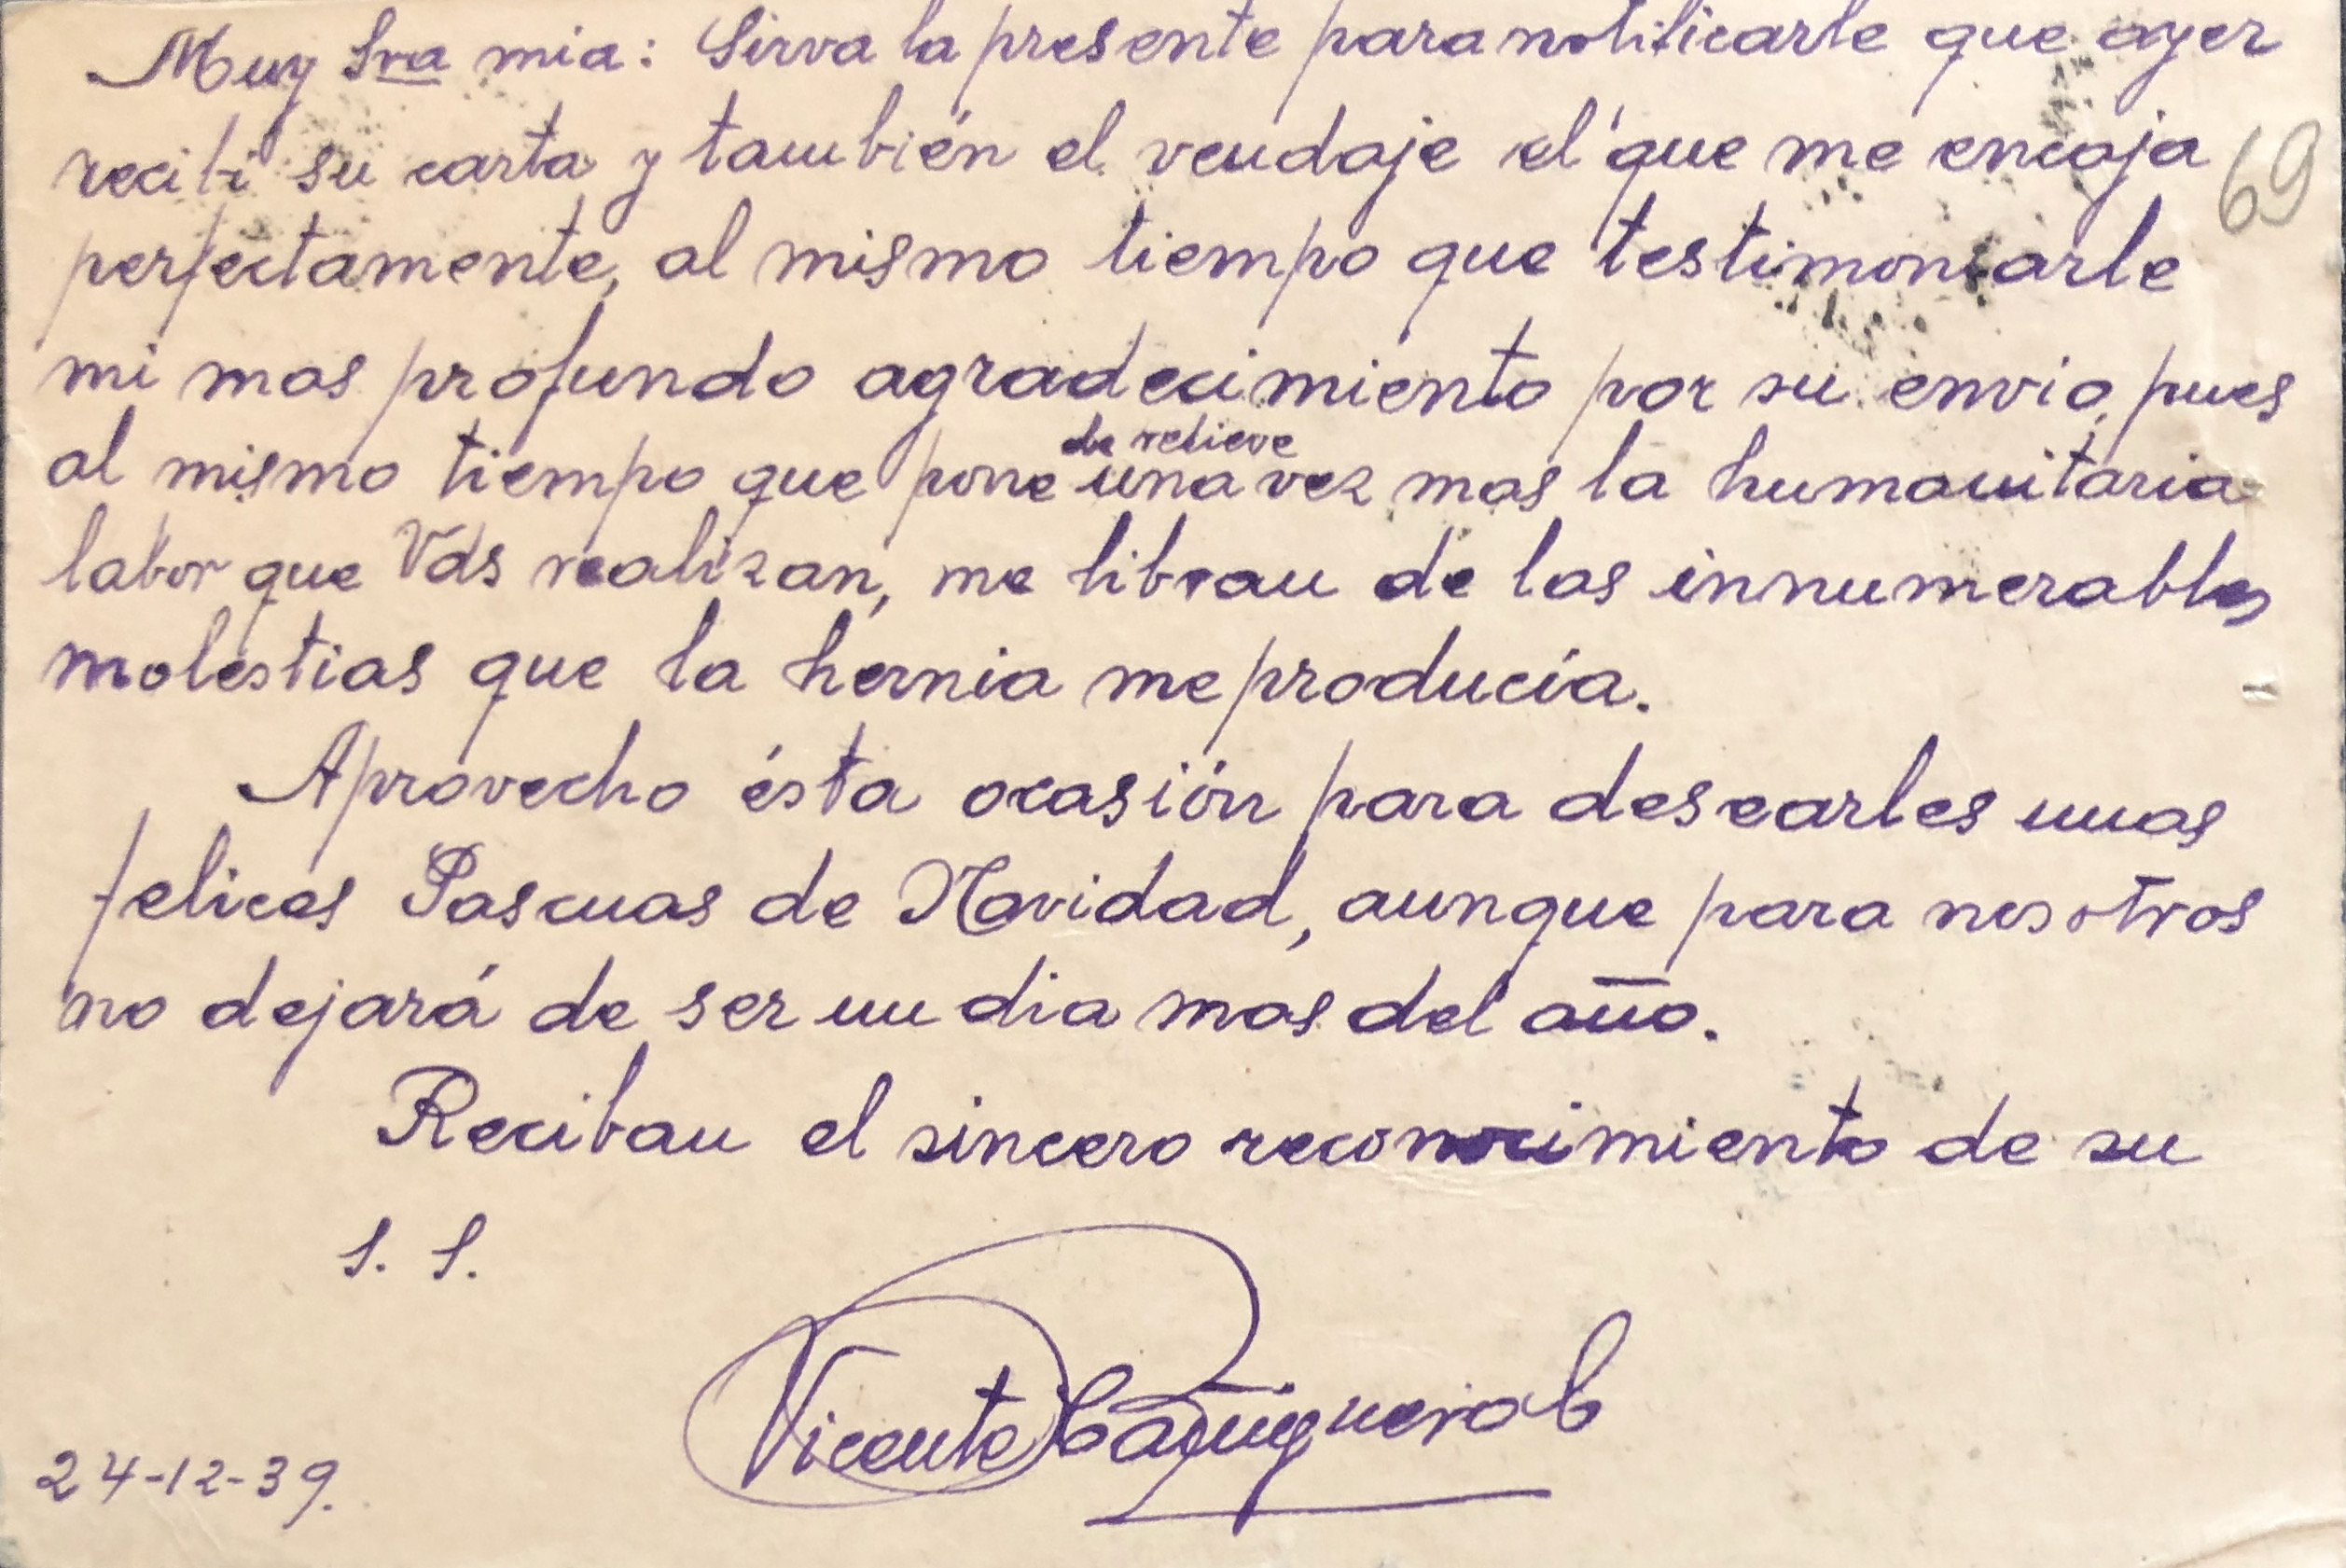 Muy Sra mia: Sirva la presente para notificarle que ayer
recibi su carta y también el vendaje el que me encaja
69
perfectamente, al mismo tiempo que testimoniarle
mi mas profundo agradecimiento por su envio, pues
de relieve
al mismo tiempo que pone una vez mas la humanitaria
labor que Vds realizan, me libran de las innumerables
molestias que la hernia me producía.
Aprovecho ésta ocasión para desearles unas
felices Pascuas de Navidad, aunque para nosotros
no dejará de ser un dia mas del año.
Reciban el sincero reconocimiento de su
S. S.
Vicente Cañigueral
24-12-39.